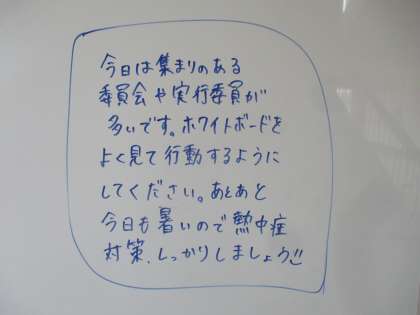 今日は集まりのある
委員会や実行委員が
多いです。ホワイトボードを
よく見て行動するように
してください。あとあと
今日も暑いので熱中症
対策、しっかりしましょう!!